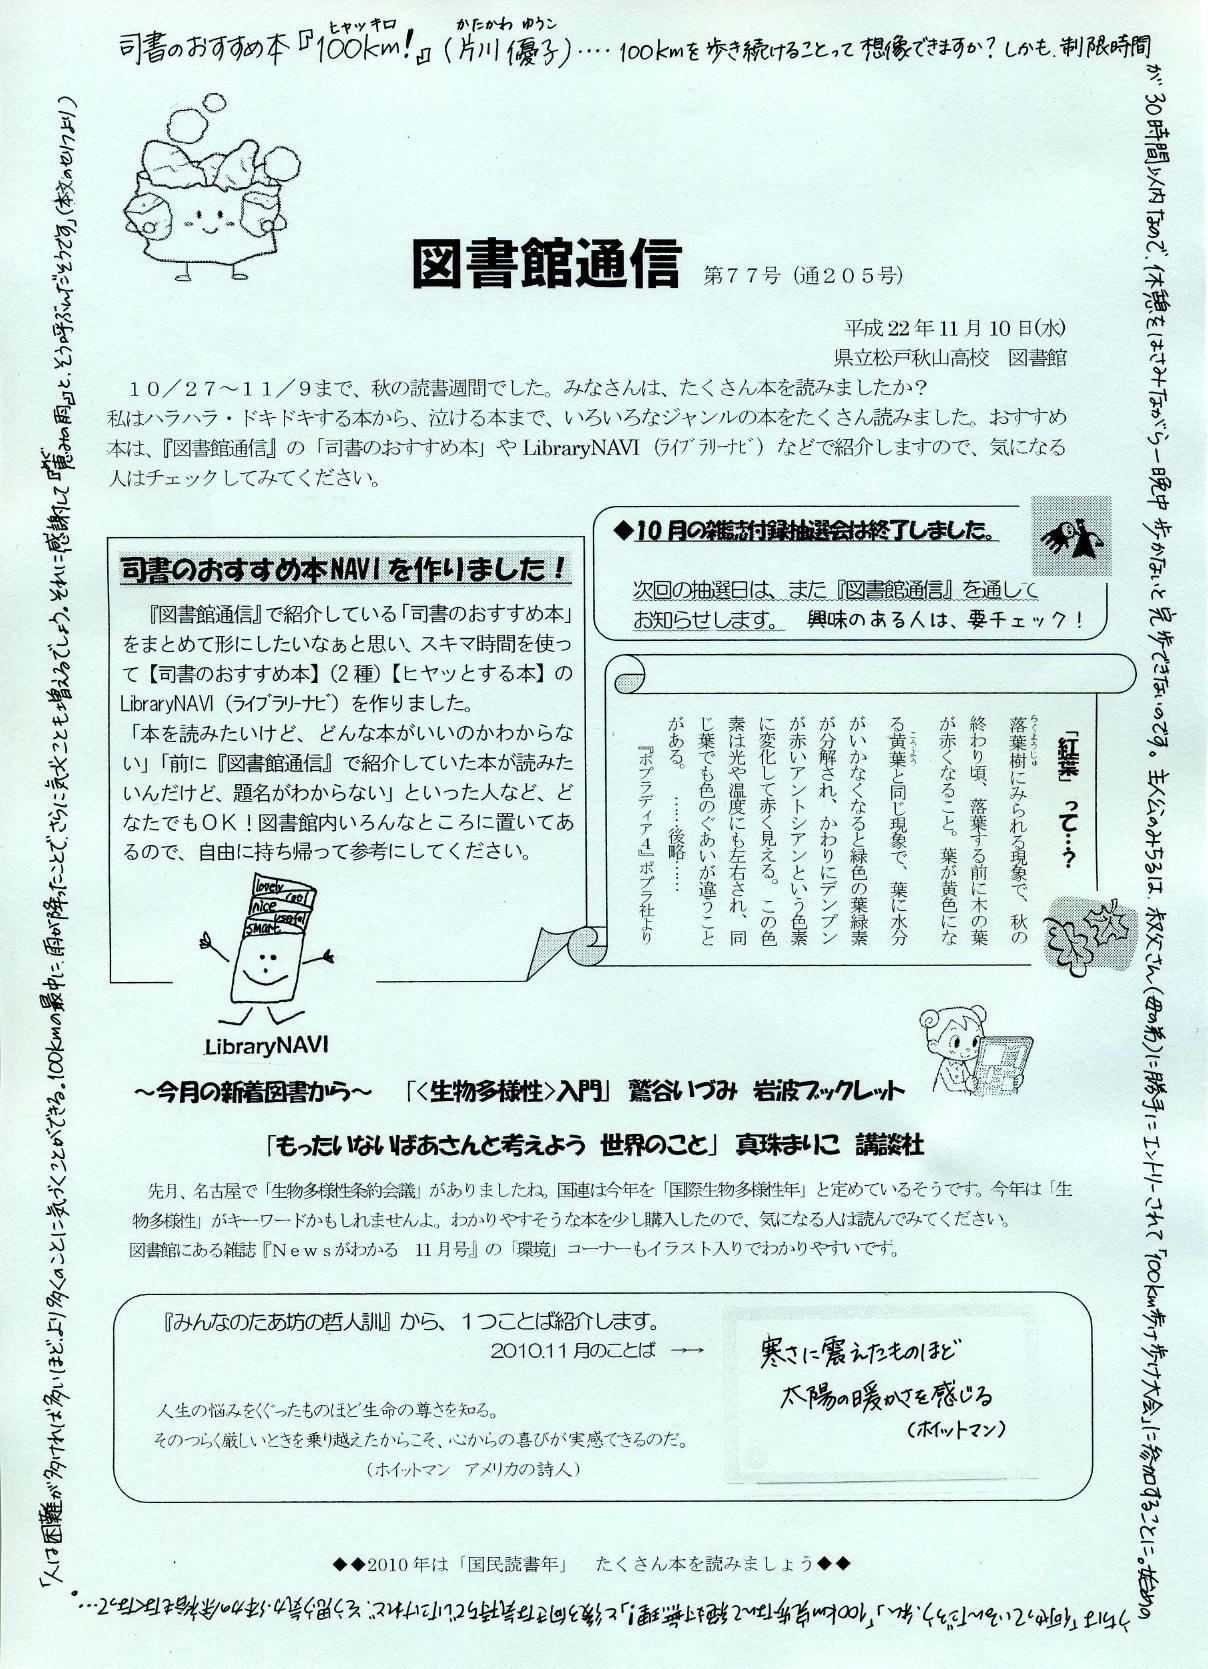 司書のおすすめ本『100km!』(片川優子)‥‥100kmを歩き続けることって想像できますか?しかも、制限時間
ヒャッキロ
かたかわ ゆうこ
が30時間以内なので、休憩をはさみながら一晩中歩かないと完歩できないのです。主人公のみちるは、叔父さん(母の弟)に勝手にエントリーされて「100km歩け歩け大会」に参加することに。始めの
うちは「何やっているんだろう、私」「100km完歩なんて絶対無理!」と後ろ向きな気持ちでいたけれど、そう思う気力・体力の余裕もなくなって…。
「人は困難が多ければ多いほど、より多くのことに気づくことができる。100kmの最中に、雨が降ったことで、さらに気づくことも増えるでしょう。それに感謝して『恵みの雨』と、そう呼ぶんだそうです」(本文のセリフより)
図書館通信 第77号(通205号)
平成22年11月10日(水)
県立松戸秋山高校 図書館
10/27~11/9まで、秋の読書週間でした。みなさんは、たくさん本を読みましたか?
私はハラハラ・ドキドキする本から、泣ける本まで、いろいろなジャンルの本をたくさん読みました。おすすめ
本は、『図書館通信』の「司書のおすすめ本」や LibraryNAVI(ライブラリーナビ)などで紹介しますので、気になる
人はチェックしてみてください。
◆10月の雑誌付録抽選会は終了しました。
次回の抽選日は、また『図書館通信』を通して
お知らせします。 興味のある人は、要チェック!
司書のおすすめ本NAVIを作りました!
『図書館通信』で紹介している「司書のおすすめ本」
をまとめて形にしたいなぁと思い、スキマ時間を使っ
て【司書のおすすめ本】(2種)【ヒヤッとする本】の
LibraryNAVI(ライブラリーナビ)を作りました。
「本を読みたいけど、どんな本がいいのかわからな
い」「前に『図書館通信』で紹介していた本が読みた
いんだけど、題名がわからない」といった人など、ど
なたでもOK!図書館内いろんなところに置いてあ
るので、自由に持ち帰って参考にしてください。
lovely
cool
nice
useful
smart
LibraryNAVI
「紅葉」って…?
らくようじゅ
落葉樹にみられる現象で、秋の
終わり頃、落葉する前に木の葉
が赤くなること。葉が黄色にな
こうよう
る黄葉と同じ現象で、葉に水分
がいかなくなると緑色の葉緑素
が分解され、かわりにデンプン
が赤いアントシアンという色素
に変化して赤く見える。この色
素は光や温度にも左右され、同
じ葉でも色のぐあいが違うこと
がある。 ……後略……
『ポプラディア4』ポプラ社より
~今月の新着図書から~ 「<生物多様性>入門」 鷲谷いづみ 岩波ブックレット
「もったいないばあさんと考えよう 世界のこと」 真珠まりこ 講談社
先月、名古屋で「生物多様性条約会議」がありましたね。国連は今年を「国際生物多様性年」と定めているそうです。今年は「生
物多様性」がキーワードかもしれませんよ。わかりやすそうな本を少し購入したので、気になる人は読んでみてください。
図書館にある雑誌『Newsがわかる 11月号』の「環境」コーナーもイラスト入りでわかりやすいです。
『みんなのたあ坊の哲人訓』から、1つことば紹介します。
2010.11月のことば →→
寒さに震えたものほど
太陽の暖かさを感じる
(ホイットマン)
人生の悩みをくぐったものほど生命の尊さを知る。
そのつらく厳しいときを乗り越えたからこそ、心からの喜びが実感できるのだ。
(ホイットマン アメリカの詩人)
◆◆2010年は「国民読書年」 たくさん本を読みましょう◆◆